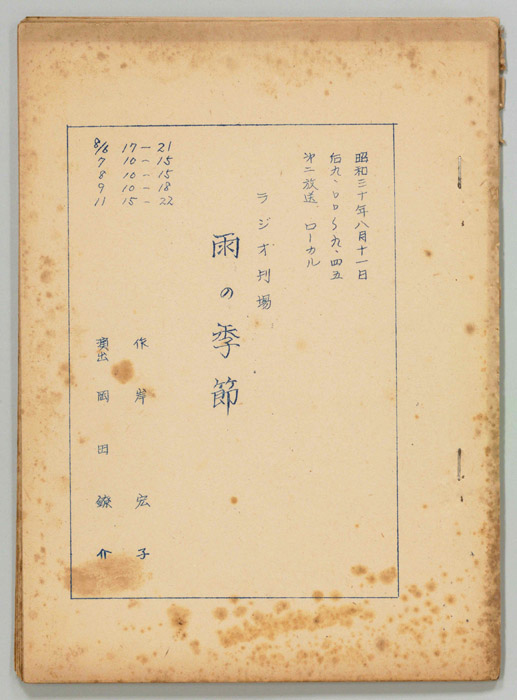 昭和三十年八月十一日
后九・〇〇～九・四五
第二放送 ローカル
ラジオ劇場
雨の季節
作 岸 宏子
演出 岡田
8/6 17-21
7 10-15
8 10-15
9 10-18
11 15-22